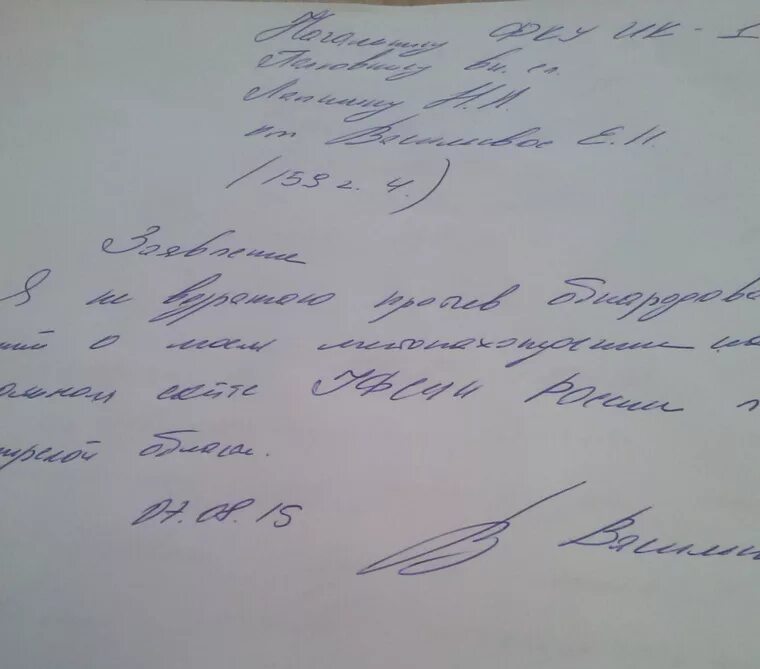 Начальнику ФКУ ИК-1
Полковнику вн. сл.
Лапкину Н.И.
от Васильевой Е.Н.
(159 г. ч.)
Заявление
Я не возражаю против обнародова
ний о моем местонахождении на
сайте УФСИН России
области.
07.08.15
Васильев